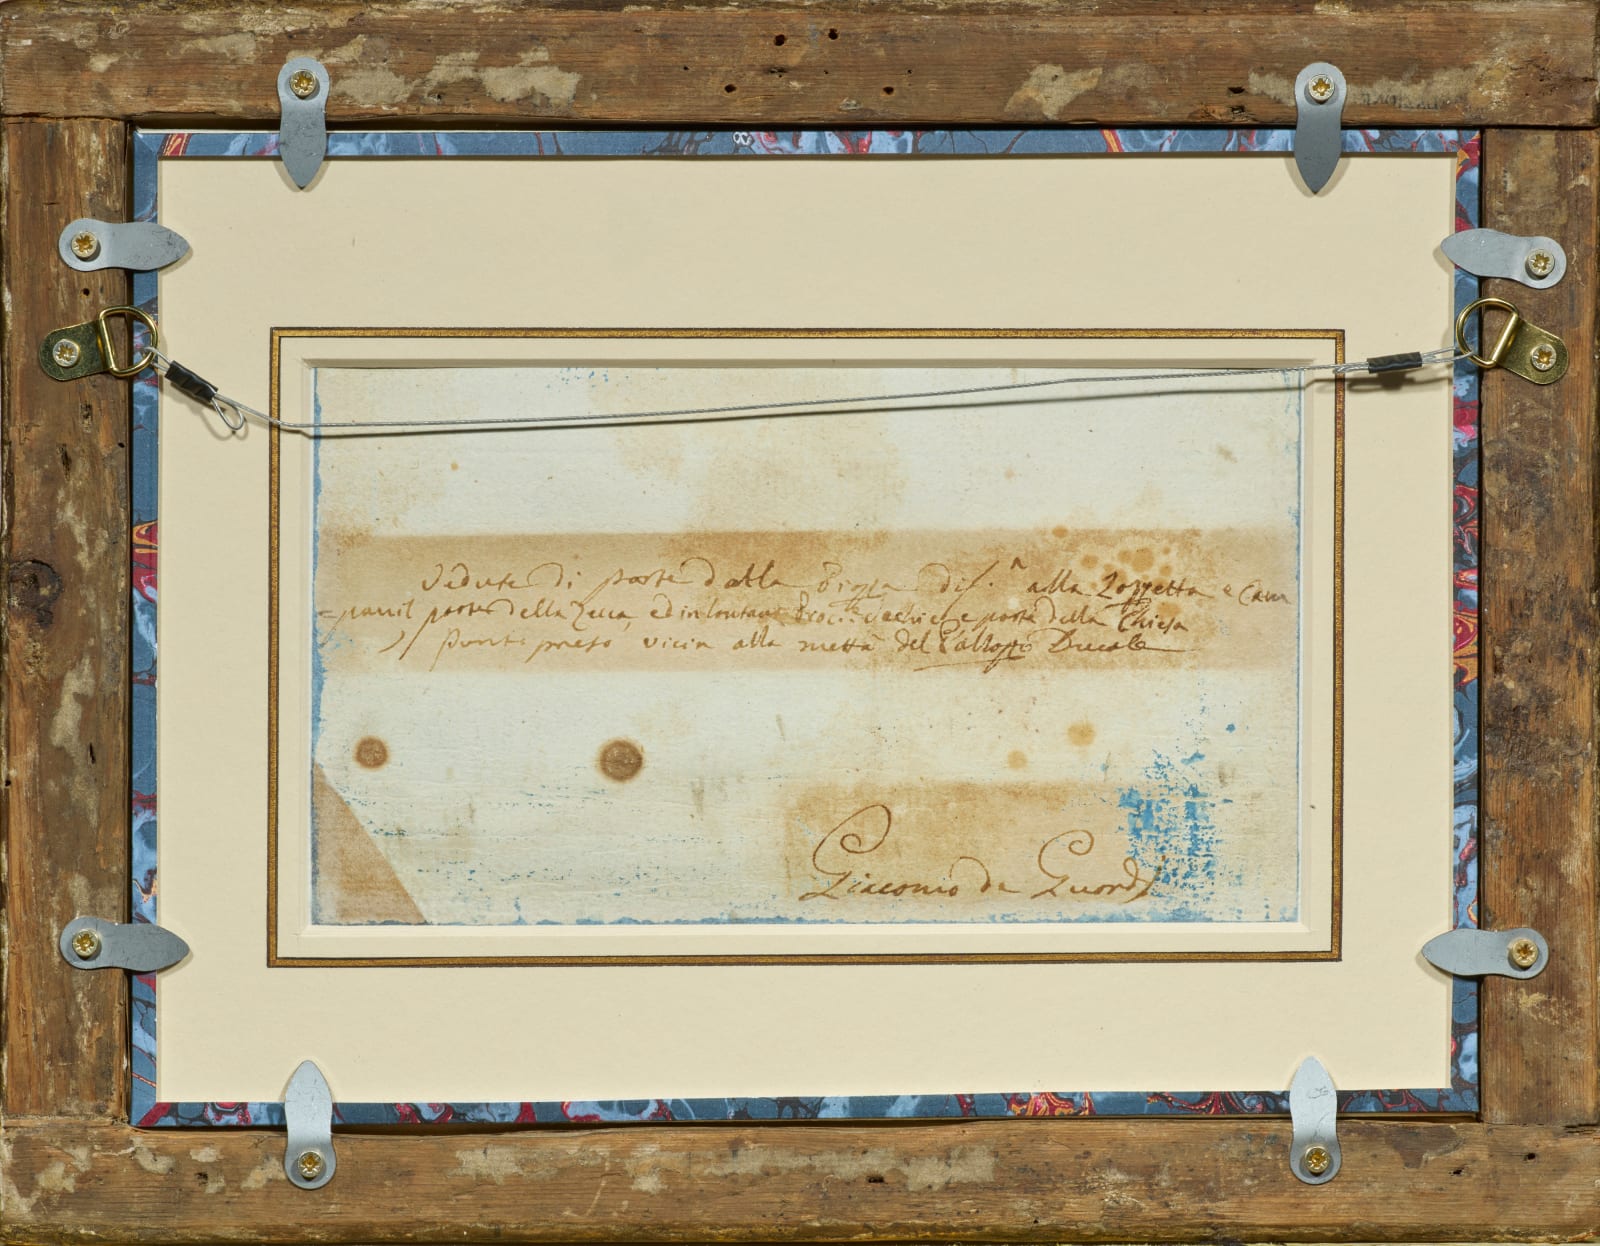 Vedute di parte dalla Piazza di S. alla Zoppetta e Cam
=panil parte della Zecca, ed in lontano Proc:e Vechie e parte della Chiesa
Punto preso vicin alla mettà del Pallazzo Ducale
Giacomo de Guardi